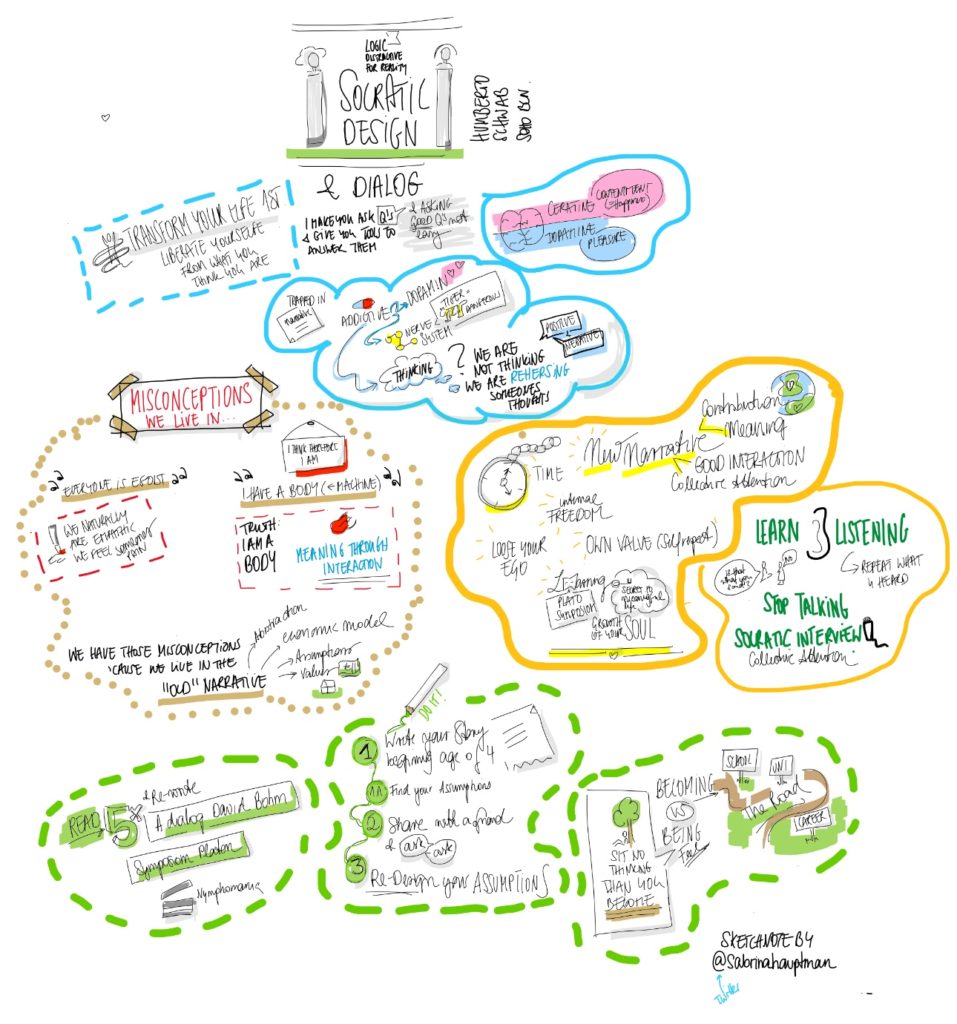 LOGIC
DESTRUCTIVE
FOR REALITY
SOCRATIC
DESIGN
HUMBERTO
SCHWAB
SOHO BCN.
& DIALOG
I MAKE YOU ASK Q's
& GIVE YOU TOOLS TO
ANSWER THEM
& ASKING
GOOD Q's not
easy
TRANSFORM YOUR LIFE 1ST
LIBERATE YOURSELF
FROM WHAT YOU
THINK YOU ARE
CERATINE
CONTENTMENT
(=Happiness)
DOPAMINE
PLEASURE
TRAPPED IN
Narrative
ADDICTIVE
DOPAMIN
NERVE
SYSTEM
TIGER =
THINKING
?
WE ARE
NOT THINKING
WE ARE REHERSING
SOMEONES
THOUGHTS
POSITIVE
NEGATIVE
MISCONCEPTIONS
WE LIVE IN...
I THINK THEREFORE
I AM
EVERYONE IS EGOIST
WE NATURALLY
ARE EMPATHIC
WE FEEL SOMEONES
PAIN
I HAVE A BODY (= MACHINE)
TRUTH:
I AM A
BODY
MEANING THROUGH
INTERACTION
WE HAVE THOSE MISCONCEPTIONS
'CAUSE WE LIVE IN THE
"OLD" NARRATIVE
Abstraction
economic model
Assumptions
Values
TIME
New Narrative
Contribution
Meaning
GOOD INTERACTION
Collective Attention
internal
FREEDOM
LOOSE YOUR
EGO
OWN VALUE (Selfrespect)
LEarning
PLATO
SYMPOSION
SECRET to
meaningful
life
GROWTH
OF YOUR SOUL
LEARN 3 LISTENING
Is that
what you
REPEAT WHAT
U HEARD
STOP TALKING
SOCRATIC INTERVIEW
Collective Attention
READ 5x
& Re-wrote
A dialog David Bohm
Symposion Platon
Nymphomania
DO IT!
1 Write your Story
beginning age of 4
1A Find your Assumptions
2 Share with a friend
& ask-ask
3 Re-Design your ASSUMPTIONS
SIT NO
THINKING
THAN YOU
BECOME
BECOMING
VS
BEING
Feel
SCHOOL
UNI
The Road
CAREER
SKETCHNOTE BY
@Sabrinahauptman
Twitter